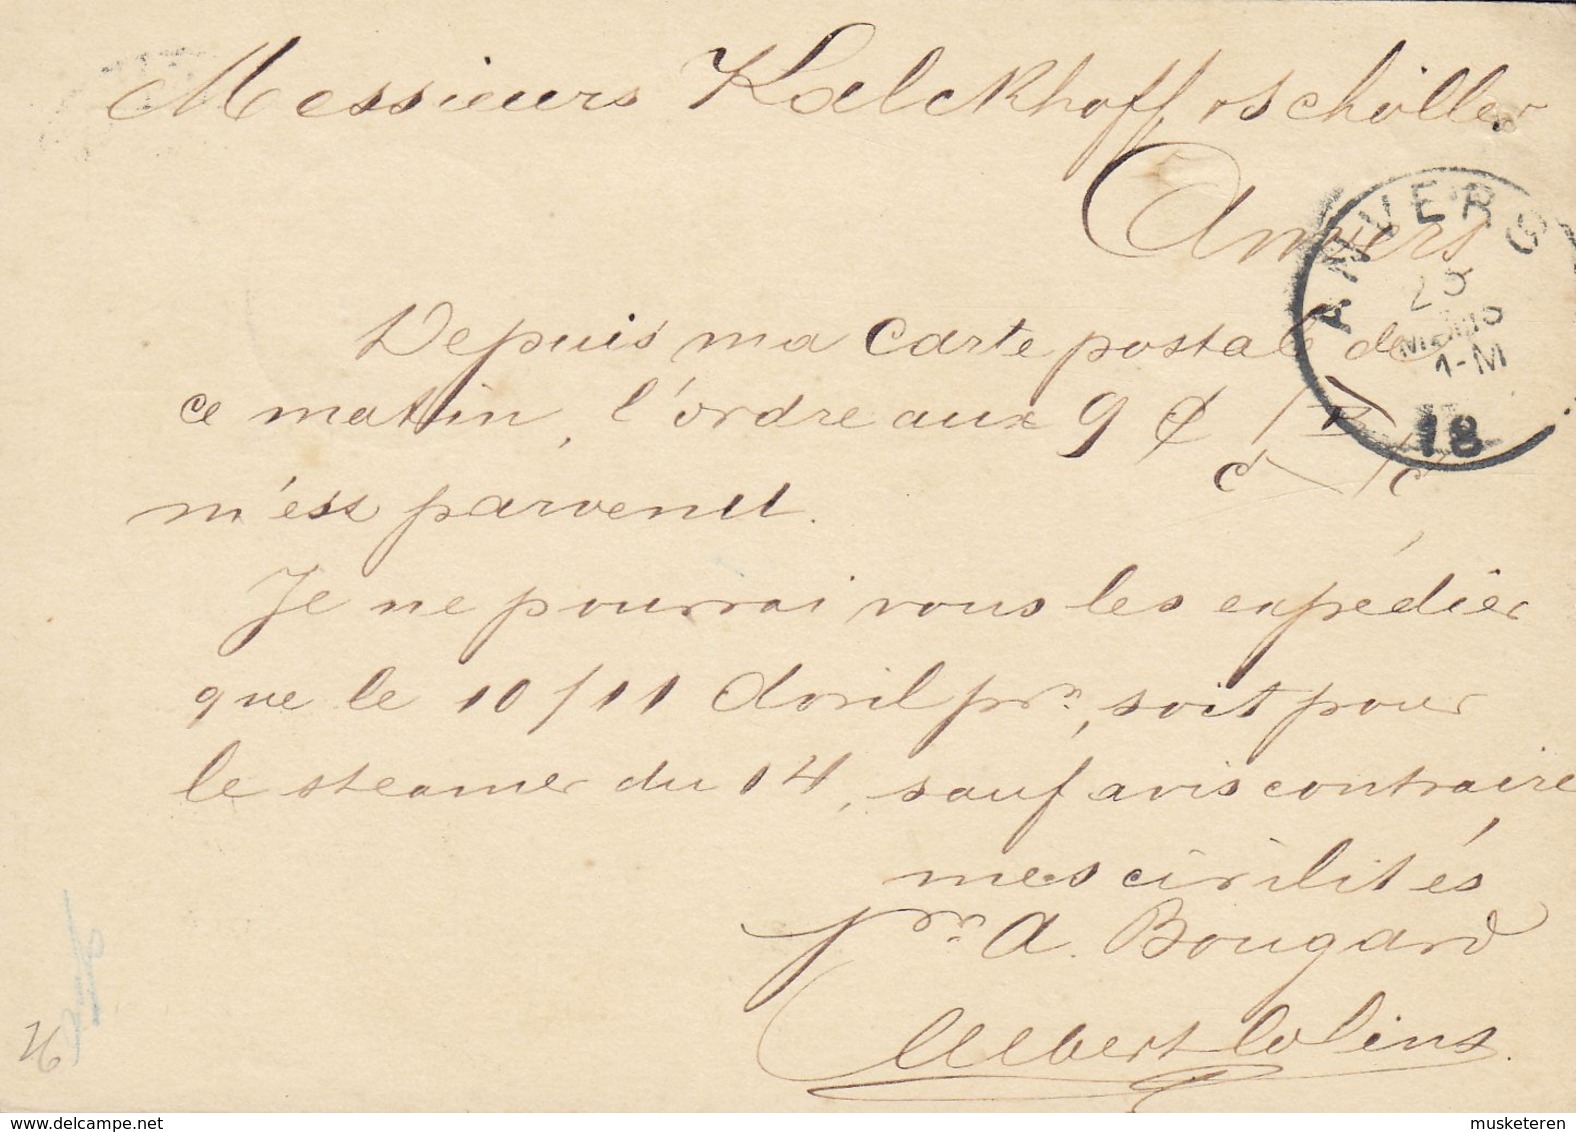 Messieurs Kalckhoff & Schöller
Anvers
ANVERS
1-M
18
Depuis ma carte postale de
ce matin, l'ordre aux 9
m'est parvenu.
Je ne pourrai vous les expédier
que le 10/11 Avril pr., soit pour
le steamer du 14, sauf avis contraire
mes civilités
pr. A. Bougard
Albert Colins
www.delcampe.net
musketeren